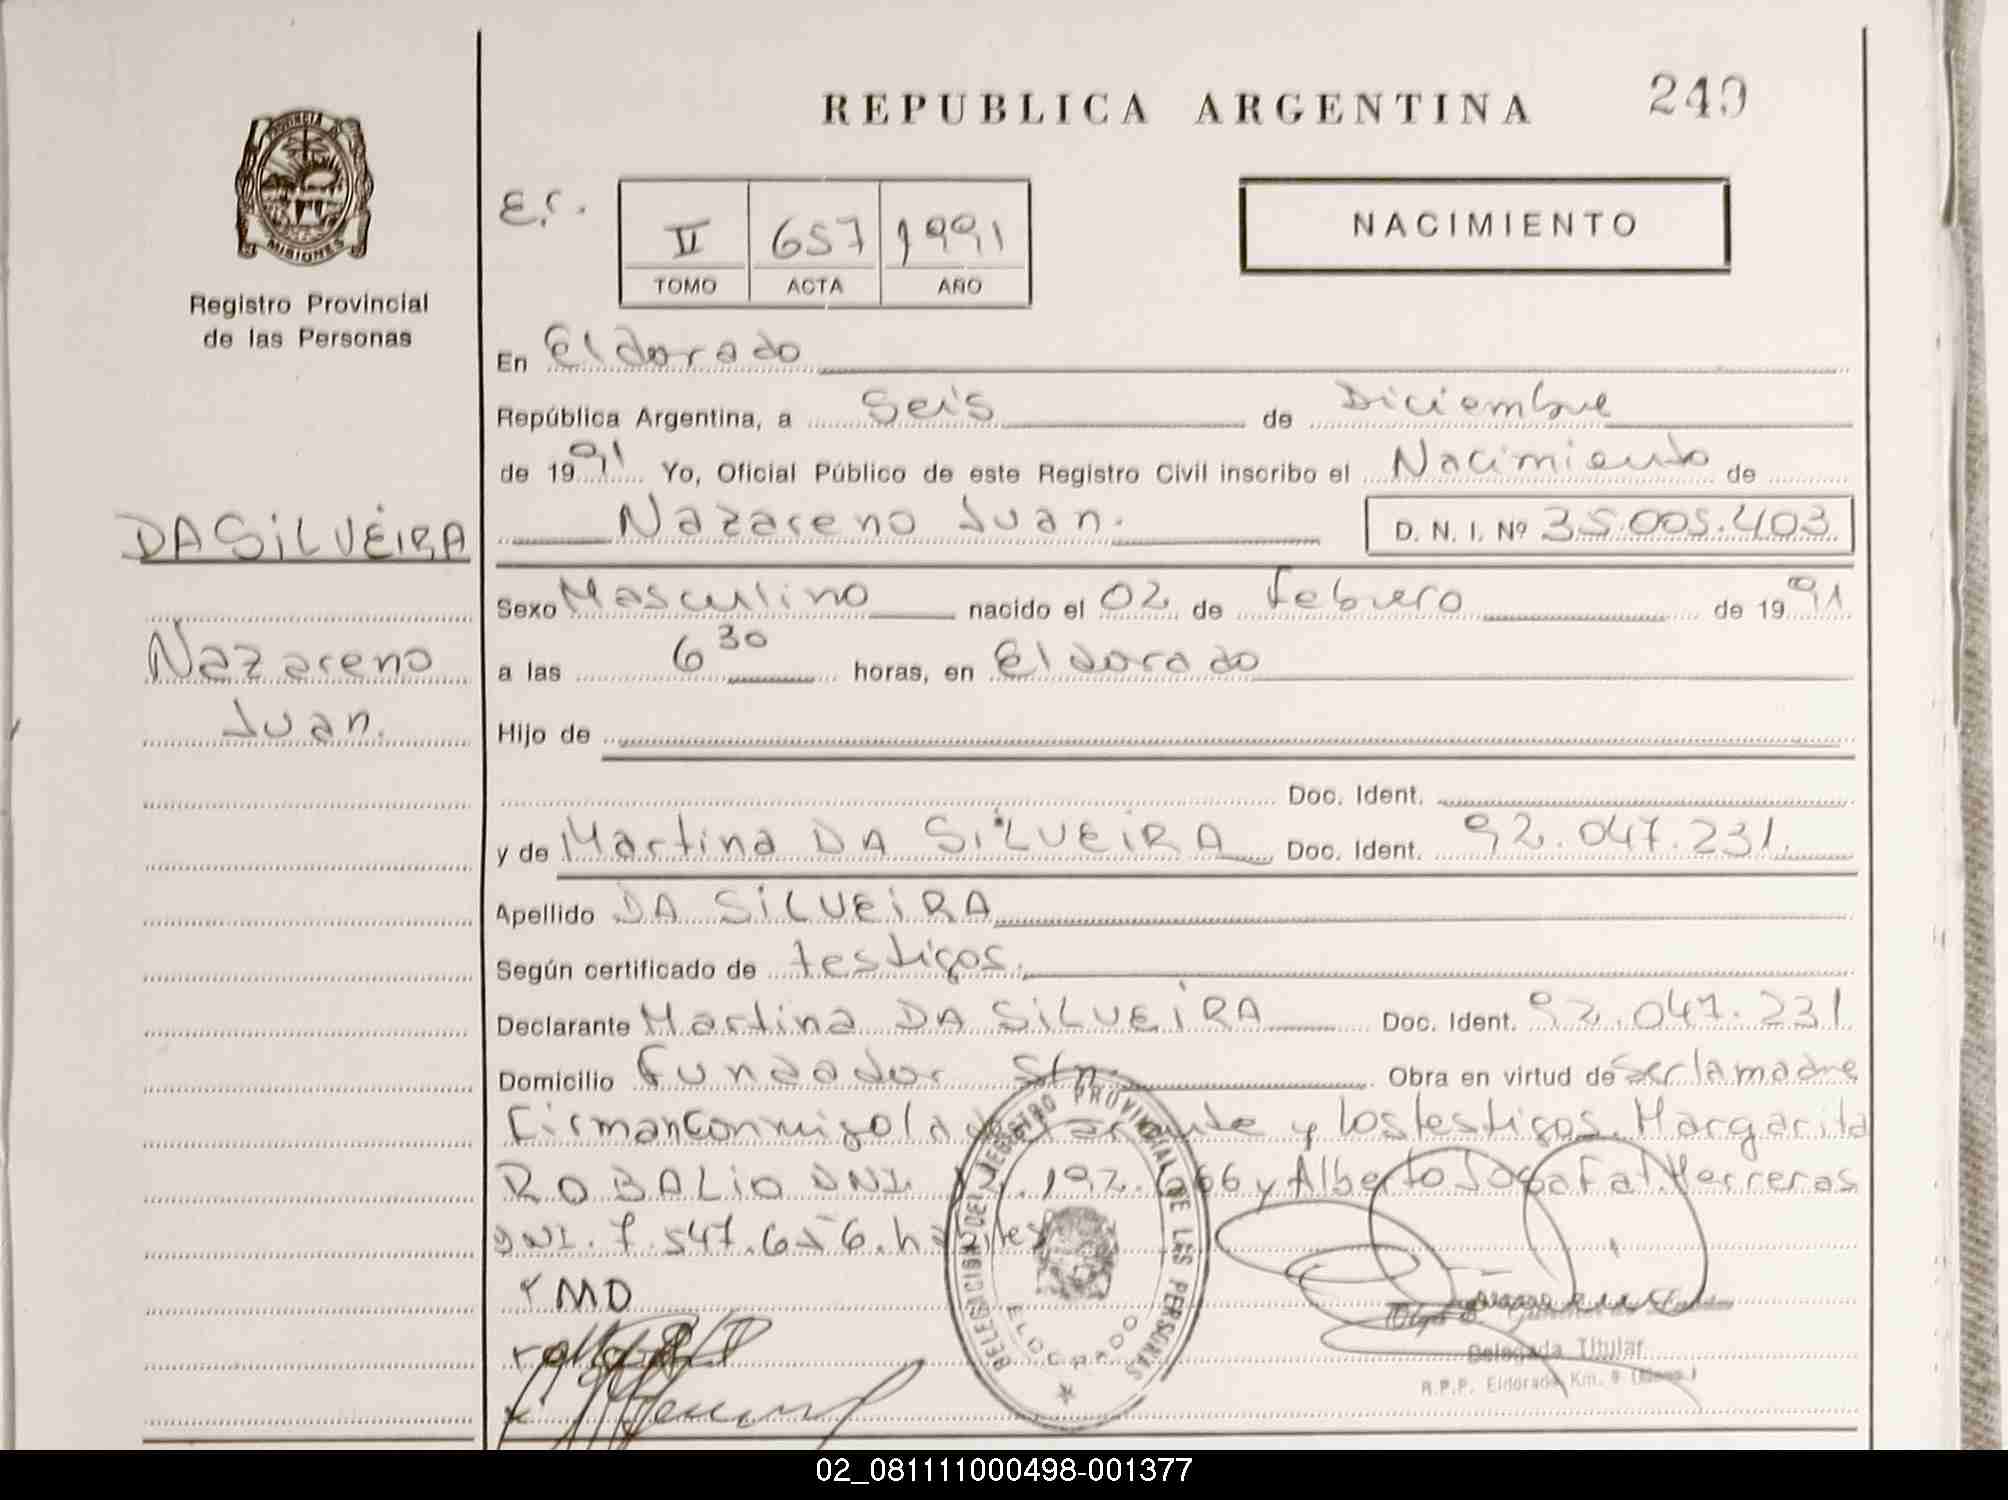 REPUBLICA ARGENTINA
249
PROVINCIA DE
MISIONES
Registro Provincial
de las Personas
E.C.
II 657 1991
TOMO ACTA AÑO
NACIMIENTO
En Eldorado
República Argentina, a Seis de Diciembre
de 1991 Yo, Oficial Público de este Registro Civil inscribo el Nacimiento de
DA SILVEIRA
Nazareno Juan. D. N. I. Nº 35.005.403
Sexo Masculino nacido el 02 de Febrero de 1991
Nazareno
Juan.
a las 6 30 horas, en Eldorado
Hijo de
Doc. Ident.
y de Martina DA SILVEIRA Doc. Ident. 92.047.231.
Apellido DA SILVEIRA
Según certificado de testigos.
Declarante Martina DA SILVEIRA Doc. Ident. 92.047.231
Domicilio Fundador S/n. Obra en virtud de ser la madre
Firman conmigo la y los testigos. Margarita
ROBALIO DNI. 12.192. 66 y Alberto Josafat Herreras
DNI. 7.547.656. hábiles
MD
DELEGACION DEL REGISTRO PROVINCIAL DE LAS PERSONAS
ELDORADO
Olga
Delegada Titular
R.P.P. Eldorado Km. 9
02_081111000498-001377